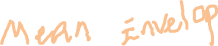 Mean Envelop